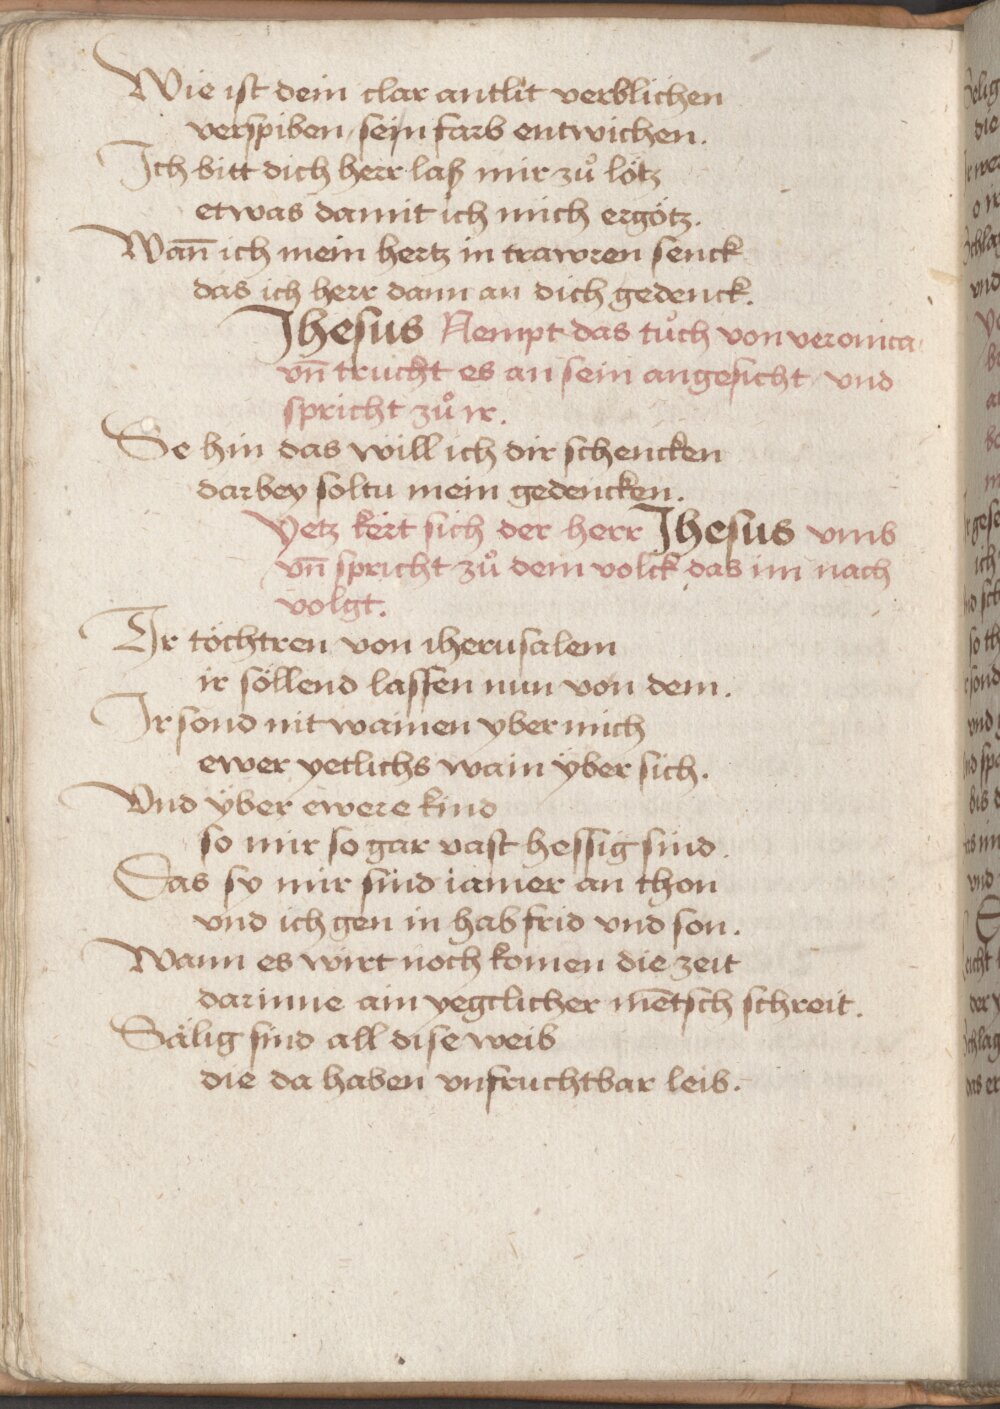 Wie ist dein clar antlit verblichen
verspiben sein farb entwichen.
Ich bitt dich herr laß mir zů lötz
etwas damit ich mich ergötz.
Wan̄ ich mein hertz in trawren senck
das ich herr dann an dich gedenck.
Jhesus Nempt das tůch von veronica
vn̄ trucht es an sein angesicht vnd
spricht zů ir.
Se hin das will ich dir schencken
darbey soltu mein gedencken.
Yetz kert sich der herr Jhesus vmb
vn̄ spricht zů dem volck das im nach
volgt.
Ir töchtren von iherusalem
ir söllend lassen nun von dem.
Ir sond nit wainen yber mich
ewer yetlichs wain yber sich.
Vnd yber ewere kind
so mir so gar vast hessig sind.
Das sy mir sind iamer an thon
vnd ich gen in hab frid vnd son.
Wann es wirt noch komen die zeit
darinne ain yegclicher mēntsch schreit.
Sälig sind all dise weib
die da haben vnfruchtbar leib.